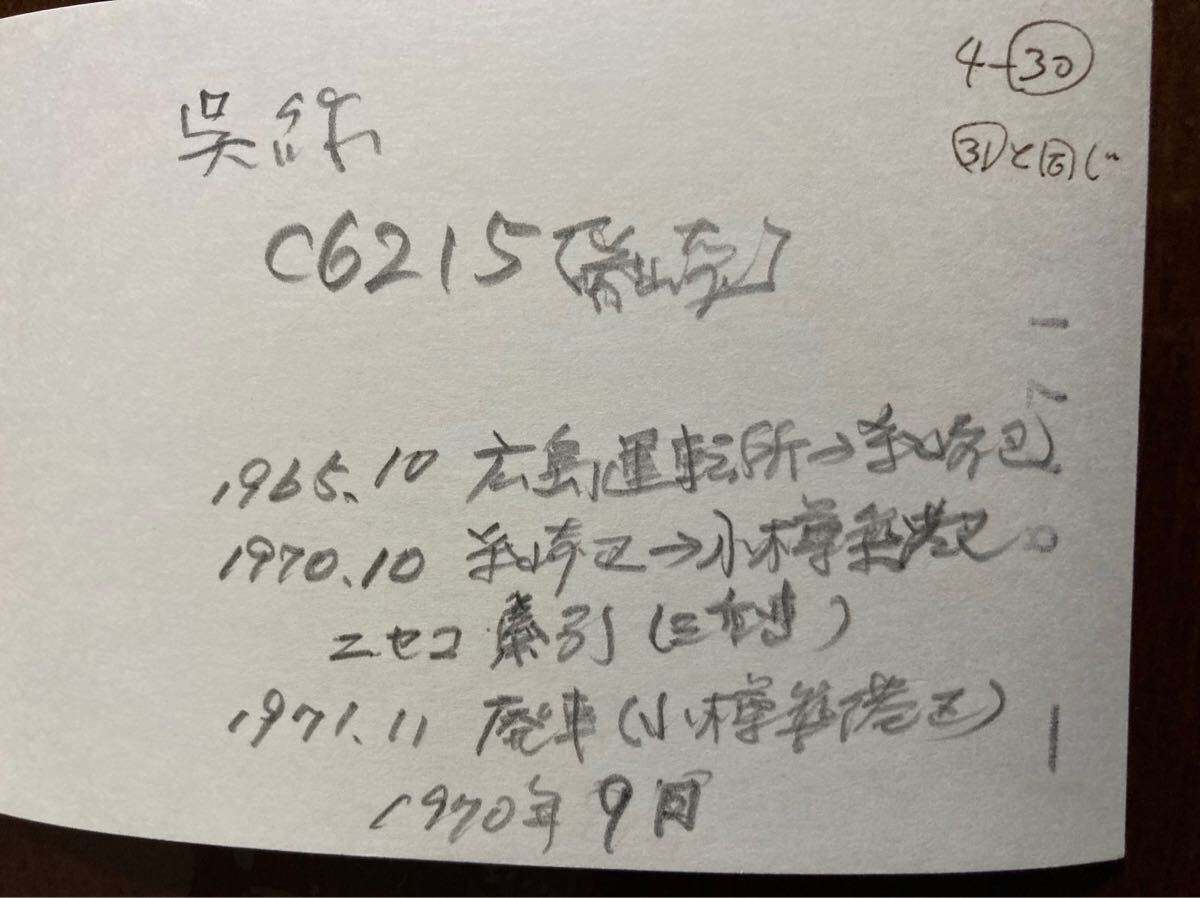 4-㉚
㉛と同じ
呉線
C6215
1965.10 広島運転所→糸崎区
1970.10 糸崎区→小樽築港区
ニセコ 牽引 (三重連)
1971.11 廃車 (小樽築港区)
1970年 9月